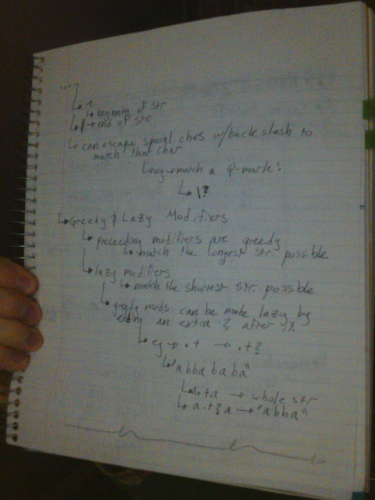 ↳ ^
↳ beginning of str
↳ $ → end of str
↳ can escape special chars w/ backslash to
match that char
↳ eg → match a Q-mark:
↳ \?
↳ Greedy & Lazy Modifiers
↳ preceeding modifiers are greedy
↳ match the longest str possible
↳ lazy modifiers
↳ match the shortest str possible
↳ greedy mods can be made lazy by
adding an extra ? after it
↳ eg → .+ → .+?
↳ "abbababa"
↳ a.+a → whole str
↳ a.+?a → "abba"